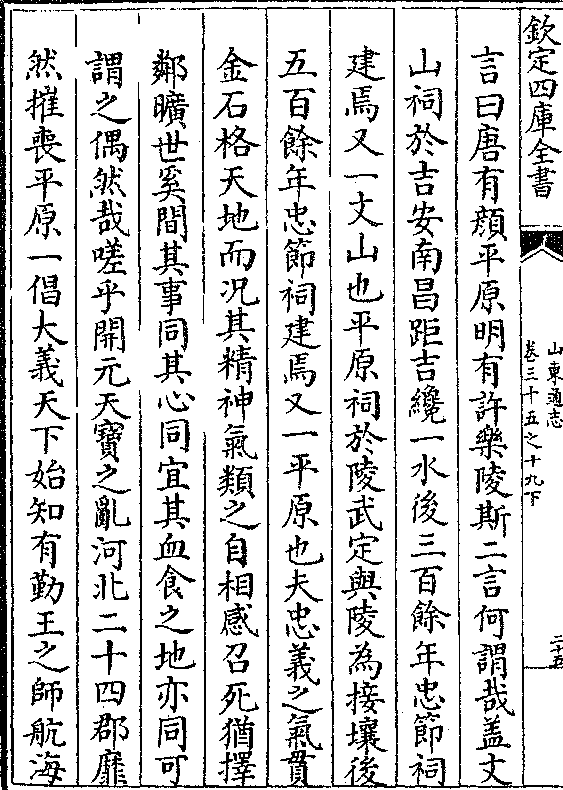 欽定四庫全書
山東通志
卷三十五之十九下
二十五
言曰唐有顔平原明有許樂陵斯二言何謂哉蓋文
山祠於吉安南昌距吉纔一水後三百餘年忠節祠
建焉又一文山也平原祠於陵武定與陵為接壤後
五百餘年忠節祠建焉又一平原也夫忠義之氣貫
金石格天地而况其精神氣類之自相感召死猶擇
鄰曠世奚間其事同其心同宜其血食之地亦同可
謂之偶然哉嗟乎開元天寶之亂河北二十四郡靡
然摧喪平原一倡大義天下始知有勤王之師航海